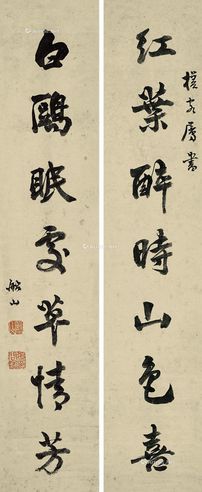 屬書
紅葉醉時山色喜
白鷗眠處草情芳
船山